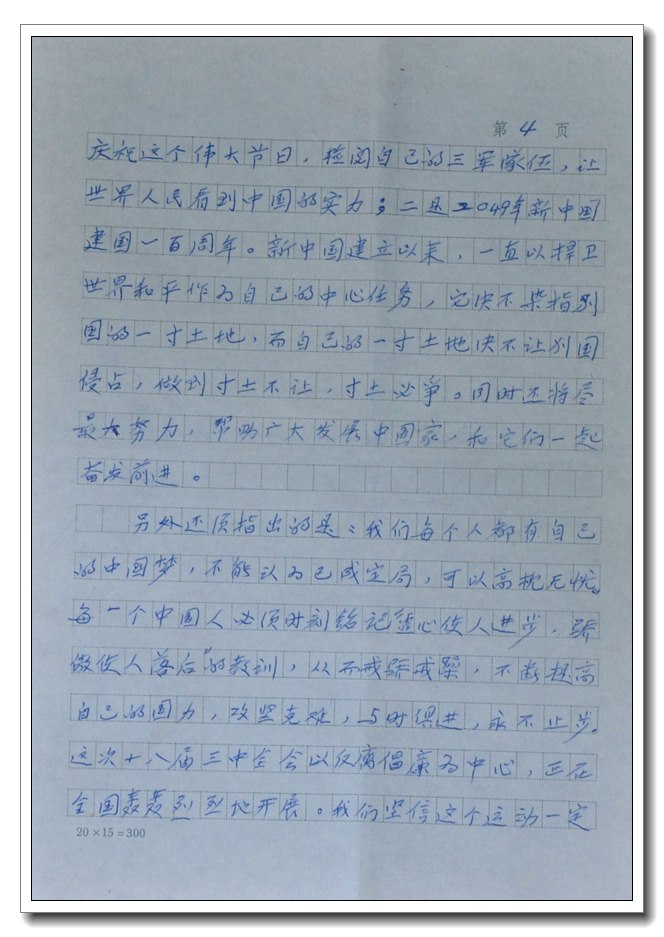 第 4 页
庆祝这个伟大节日，检阅自己的三军队伍，让
世界人民看到中国的实力；二是2049年新中国
建国一百周年。新中国建立以来，一直以捍卫
世界和平作为自己的中心任务，它决不染指别
国的一寸土地，而自己的一寸土地决不让别国
侵占，做到寸土不让，寸土必争。同时还将尽
最大努力，帮助广大发展中国家，和它们一起
奋发前进。
另外还须指出的是：我们每个人都有自己
的中国梦，不能认为已成定局，可以高枕无忧。
每一个中国人必须时刻铭记虚心使人进步，骄
傲使人落后"的教训，从而戒骄戒躁，不断提高
自己的国力，攻坚克难，与时俱进，永不止步。
这次十八届三中全会以反腐倡廉为中心，正在
全国轰轰烈烈地开展。我们坚信这个运动一定
20×15=300